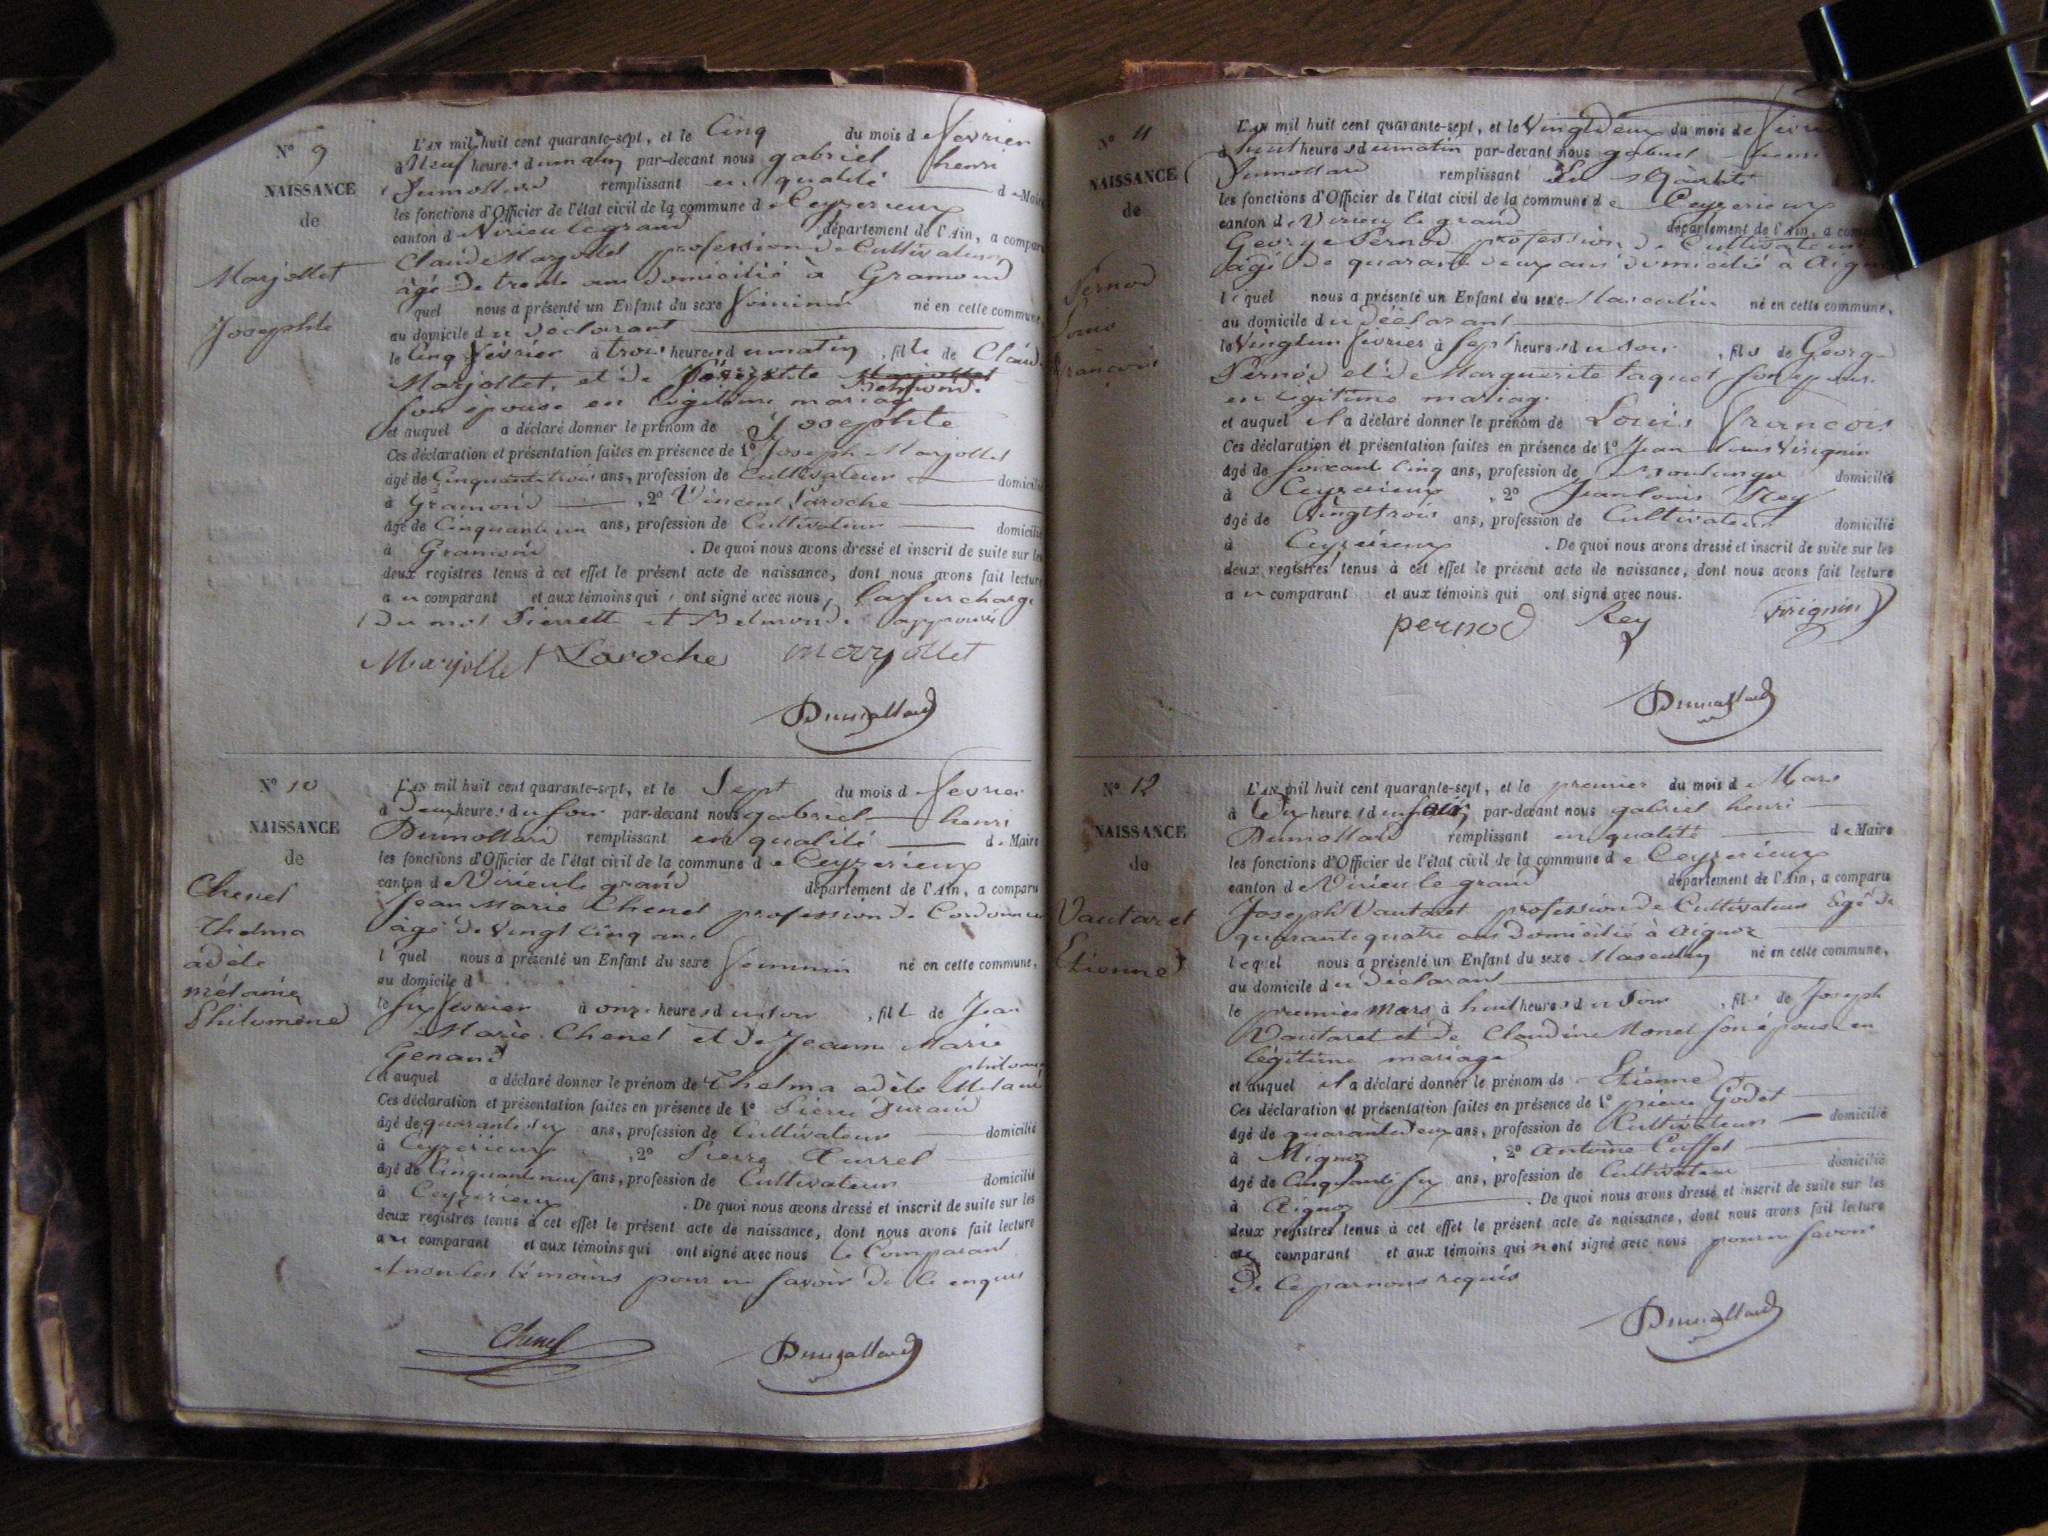 N° 9
NAISSANCE
de
Marjollet
Josephte
L'AN mil huit cent quarante-sept, et le Cinq du mois de fevrier
à Neuf heures du matin par-devant nous gabriel henri
Dumollard remplissant en qualité de Maire
les fonctions d'Officier de l'état civil de la commune de Ceyzerieux
canton de Virieu le grand département de l'Ain, a comparu
Claude Marjollet profession de Cultivateur
âgé de trente ans domicilié à Gramond
quel nous a présenté un Enfant du sexe féminin né en cette commune,
au domicile du déclarant
le Cinq février à trois heures du matin, fille de Claude
Marjollet, et de Pierrette Marjollet Belmond
son épouse en légitime mariage
et auquel a déclaré donner le prénom de Josephte
Ces déclaration et présentation faites en présence de 1° Joseph Marjollet
âgé de Cinquante trois ans, profession de Cultivateur domicilié
à Gramond, 2° Vincent Laroche
âgé de Cinquante un ans, profession de Cultivateur domicilié
à Gramond. De quoi nous avons dressé et inscrit de suite sur les
deux registres tenus à cet effet le présent acte de naissance, dont nous avons fait lecture
au comparant et aux témoins qui ont signé avec nous, la surcharge
du mot Pierrette et Belmond approuvé
Marjollet Laroche marjollet
Dumollard
N° 10
NAISSANCE
de
Chenel
Thelma
adèle
mélanie
Philomène
L'AN mil huit cent quarante-sept, et le Sept du mois de fevrier
à deux heures du soir par-devant nous gabriel henri
Dumollard remplissant en qualité de Maire
les fonctions d'Officier de l'état civil de la commune de Ceyzerieux
canton de Virieu le grand département de l'Ain, a comparu
Jean Marie Chenel profession de Cordonnier
âgé de vingt Cinq ans
lequel nous a présenté un Enfant du sexe feminin né en cette commune,
au domicile d
le six fevrier à onze heures du soir, fille de Jean
Marie Chenel et de Jeanne Marie
Genand
philomène
et auquel a déclaré donner le prénom de Thelma adèle Mélanie
Ces déclaration et présentation faites en présence de 1° Pierre Durand
âgé de quarante six ans, profession de Cultivateur domicilié
à Ceyzerieux, 2° Pierre
âgé de Cinquante neuf ans, profession de Cultivateur domicilié
à Ceyzerieux. De quoi nous avons dressé et inscrit de suite sur les
deux registres tenus à cet effet le présent acte de naissance, dont nous avons fait lecture
au comparant et aux témoins qui ont signé avec nous le Comparant
et non les témoins pour ne savoir de ce enquis
Chenel Dumollard
N° 11
NAISSANCE
de
Pernod
Louis
françois
L'AN mil huit cent quarante-sept, et le Vingt deux du mois de fevrier
à huit heures du matin par-devant nous gabriel henri
Dumollard remplissant en qualité
les fonctions d'Officier de l'état civil de la commune de Ceyzerieux
canton de Virieu le grand département de l'Ain, a comparu
George Pernod profession de Cultivateur
âgé de quarante deux ans domicilié à Aignoz
lequel nous a présenté un Enfant du sexe Masculin né en cette commune,
au domicile du déclarant
le Vingt un fevrier à sept heures du soir, fils de George
Pernod et de Marguerite taquet son épouse
en légitime mariage
et auquel il a déclaré donner le prénom de Louis françois
Ces déclaration et présentation faites en présence de 1° Jean Louis Virignin
âgé de soixante Cinq ans, profession de Boulanger domicilié
à Ceyzerieux, 2° Jean Louis Rey
âgé de vingt trois ans, profession de Cultivateur domicilié
à Ceyzerieux. De quoi nous avons dressé et inscrit de suite sur les
deux registres tenus à cet effet le présent acte de naissance, dont nous avons fait lecture
au comparant et aux témoins qui ont signé avec nous.
pernod Rey Virignin
Dumollard
N° 12
NAISSANCE
de
Vautaret
Etienne
L'AN mil huit cent quarante-sept, et le premier du mois de Mars
à heures du soir par-devant nous gabriel henri
Dumollard remplissant en qualité de Maire
les fonctions d'Officier de l'état civil de la commune de Ceyzerieux
canton de Virieu le grand département de l'Ain, a comparu
Joseph Vautaret profession de Cultivateur âgé de
quarante quatre ans domicilié à Aignoz
lequel nous a présenté un Enfant du sexe Masculin né en cette commune,
au domicile du déclarant
le premier Mars à huit heures du soir, fils de Joseph
Vautaret et de Claudine Monet son épouse en
légitime mariage
et auquel il a déclaré donner le prénom de Etienne
Ces déclaration et présentation faites en présence de 1° pierre Godet
âgé de quarante deux ans, profession de Cultivateur domicilié
à Aignoz, 2° Antoine Cuffet
âgé de Cinquante six ans, profession de Cultivateur domicilié
à Aignoz. De quoi nous avons dressé et inscrit de suite sur les
deux registres tenus à cet effet le présent acte de naissance, dont nous avons fait lecture
au comparant et aux témoins qui n'ont signé avec nous pour ne savoir
de ce par nous requis
Dumollard